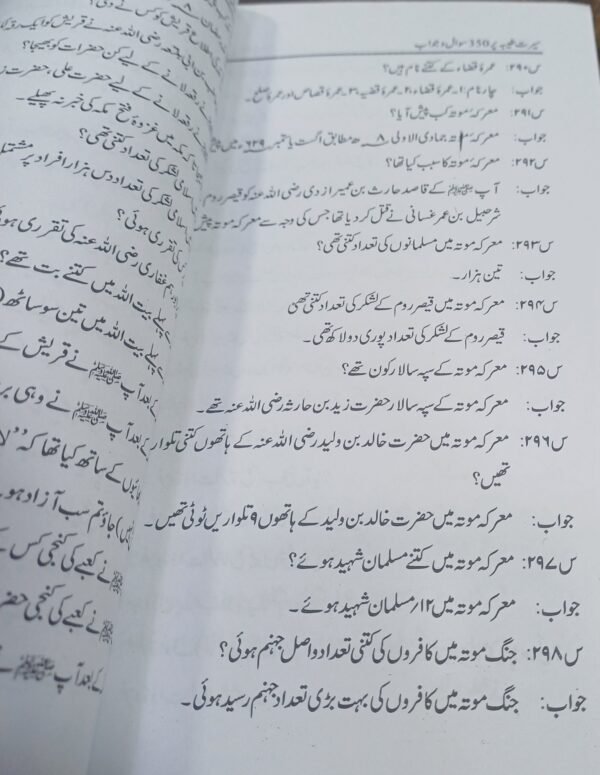 سیرت طیبہ پر 350 سوال و جواب
س۲۹۰: عمرۂ قضاء کے کتنے نام ہیں؟
جواب: چار نام: ۱۔عمرۂ قضاء، ۲۔عمرۂ قضیہ، ۳۔عمرۂ قصاص اور عمرۂ صلح۔
س۲۹۱: معرکہ موتہ کب پیش آیا؟
جواب: معرکہ موتہ جمادی الاولی ۸ھ مطابق اگست یا ستمبر ۶۲۹ء میں پیش
س۲۹۲: معرکہ موتہ کا سبب کیا تھا؟
جواب: آپ ﷺ کے قاصد حارث بن عمیر ازدی رضی اللہ عنہ کو قیصر روم
شرحبیل بن عمر غسانی نے قتل کر دیا تھا جس کی وجہ سے معرکہ موتہ پیش
س۲۹۳: معرکہ موتہ میں مسلمانوں کی تعداد کتنی تھی؟
جواب: تین ہزار۔
س۲۹۴: معرکہ موتہ میں قیصر روم کے لشکر کی تعداد کتنی تھی
جواب: قیصر روم کے لشکر کی تعداد پوری دو لاکھ تھی۔
س۲۹۵: معرکہ موتہ کے سپہ سالار کون تھے؟
جواب: معرکہ موتہ کے سپہ سالار حضرت زید بن حارثہ رضی اللہ عنہ تھے۔
س۲۹۶: معرکہ موتہ میں حضرت خالد بن ولید رضی اللہ عنہ کے ہاتھوں کتنی تلوار
تھیں؟
جواب: معرکہ موتہ میں حضرت خالد بن ولید کے ہاتھوں ۹ تلواریں ٹوٹی تھیں۔
س۲۹۷: معرکہ موتہ میں کتنے مسلمان شہید ہوئے؟
جواب: معرکہ موتہ میں ۱۲؍ مسلمان شہید ہوئے۔
س۲۹۸: جنگ موتہ میں کافروں کی کتنی تعداد واصل جہنم ہوئی؟
جواب: جنگ موتہ میں کافروں کی بہت بڑی تعداد جہنم رسید ہوئی۔
رقعہ لانے کے لیے کن حضرات کو بھیجا؟
رقعہ لانے کے لیے حضرت علی، حضرت
مکہ میں غزوۂ فتح مکہ کی خبر نہ پھیلے۔
اسلامی لشکر کی تعداد کتنی تھی؟
اسلامی لشکر کی تعداد دس ہزار افراد پر مشتمل
کی تقرری ہوئی؟
غفاری رضی اللہ عنہ کی تقرری ہوئی
پہلے بیت اللہ میں کتنے بت تھے؟
پہلے بیت اللہ میں تین سو ساٹھ
بعد آپ ﷺ نے قریش کے
بعد آپ ﷺ نے وہی
کے ساتھ کیا تھا کہ ’’لا
جاؤ تم سب آزاد ہو۔
نے کعبے کی کنجی کس
نے کعبے کی کنجی حضر
کے بعد آپ ﷺ نے